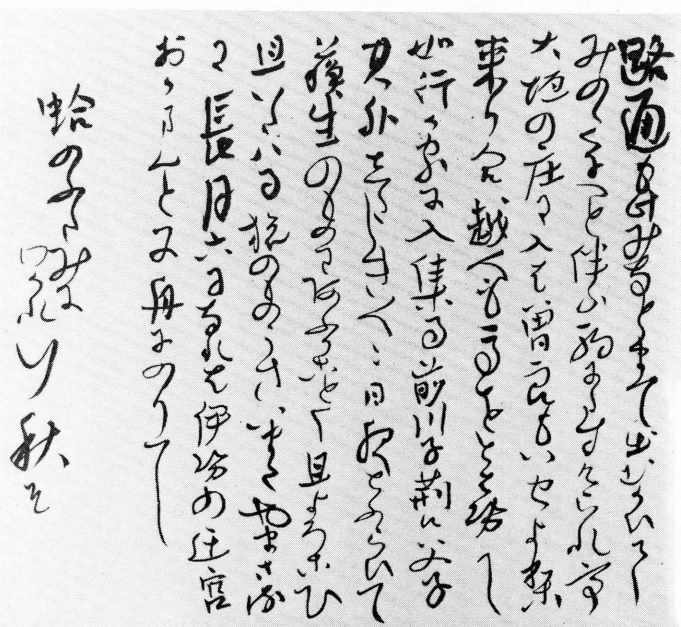 路通も此みなとまて出むかひて
みのゝ国へと伴ふ駒にたすけられて
大垣の庄に入は曽良もいせより
来り合越人も馬をとはせて
如行か家に入集る前川子荊口父子
其外したしき人々日夜とふらひて
蘇生のものにあふかことく且よろこひ
且いたはる旅のものうさもいまたやまさる
に長月六日になれは伊勢の迁宮
おかまんと又舟にのりて
蛤のふたみにわかれ行秋そ